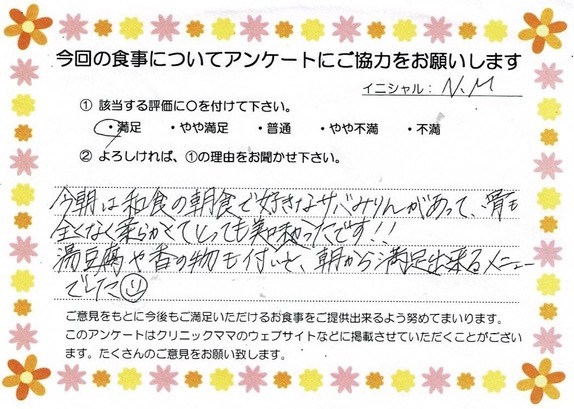 今回の食事についてアンケートにご協力をお願いします
イニシャル：N.M
① 該当する評価に○を付けて下さい。
・満足 ・やや満足 ・普通 ・やや不満 ・不満
② よろしければ、①の理由をお聞かせ下さい。
今朝は和食の朝食で好きなサバみりんがあって、骨も
全くなく柔らかくてとっても美味かったです!!
湯豆腐や香の物も付いて、朝から満足出来るメニュー
でした
ご意見をもとに今後もご満足いただけるお食事をご提供出来るよう努めてまいります。
このアンケートはクリニックママのウェブサイトなどに掲載させていただくことがござい
ます。たくさんのご意見をお願い致します。